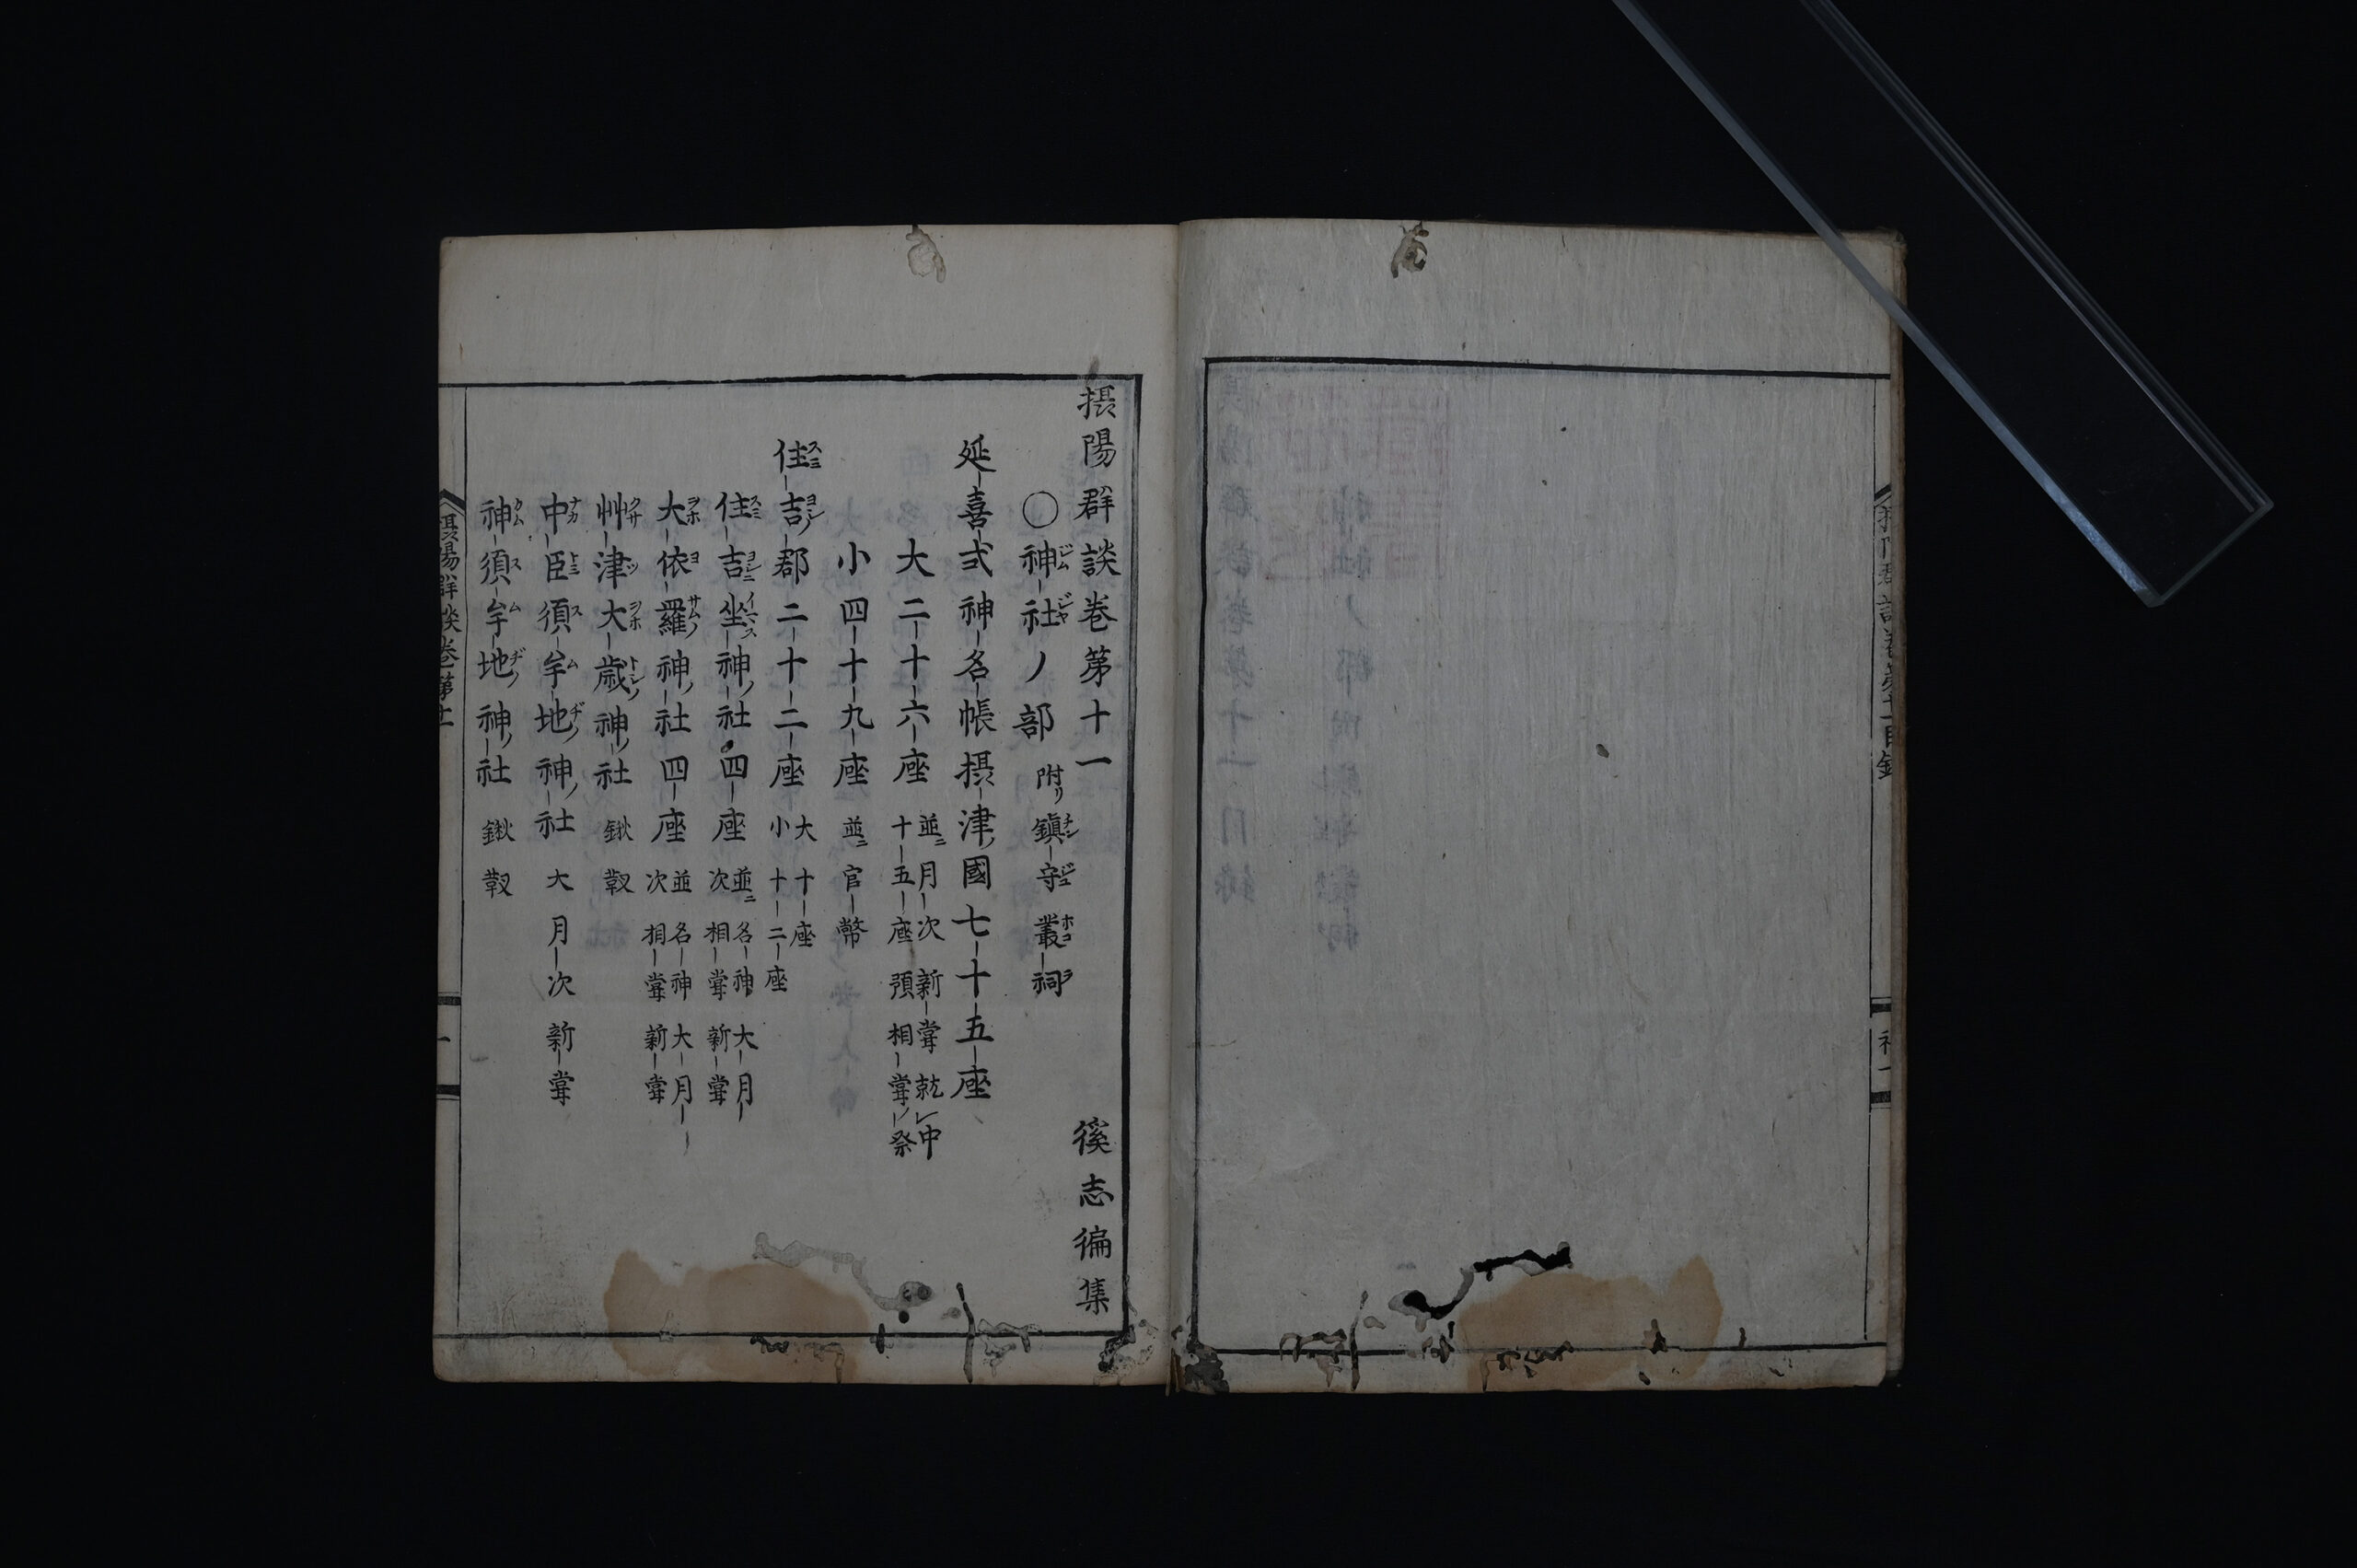 摂陽群談巻第十一
徯志徧集
〇神社ノ部 附リ鎮守叢祠
延喜式神名帳摂津國七十五座
大二十六座 並ニ月次新甞就レ中
十五座預相甞ノ祭
小四十九座 並ニ官幣
住吉郡二十二座 大十座
小十二座
住吉坐神社四座 並ニ名神大月
次相甞新甞
大依羅神社四座 並名神大月
次相甞新甞
艸津大歳神社 鍬靫
中臣須牟地神社 大月次新甞
神須牟地神社 鍬靫
摂陽群談巻第十一
一